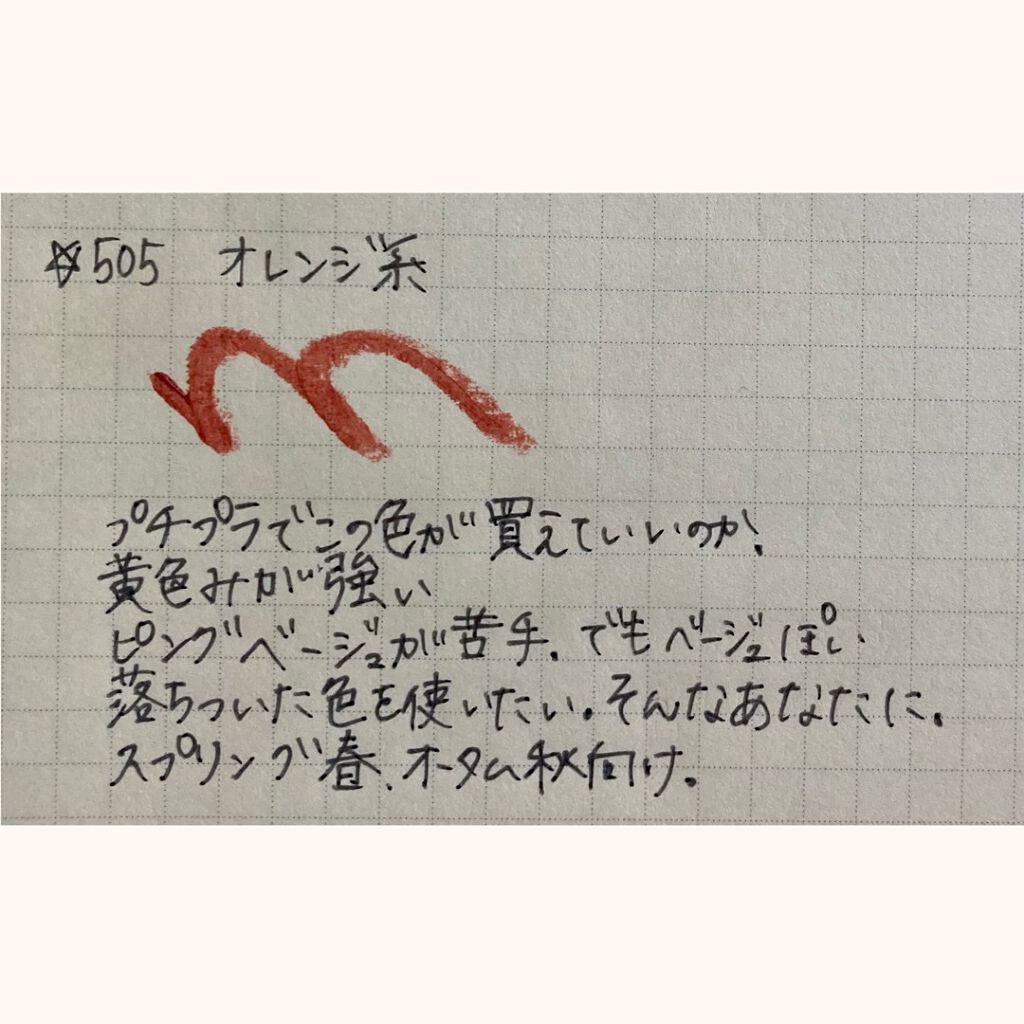 ☆505 オレンジ系
プチプラでこの色が買えていいのか!
黄色みが強い
ピングベージュが苦手、でもベージュぽい
落ちついた色を使いたい。そんなあなたに。
スプリング春、オータム秋向け。